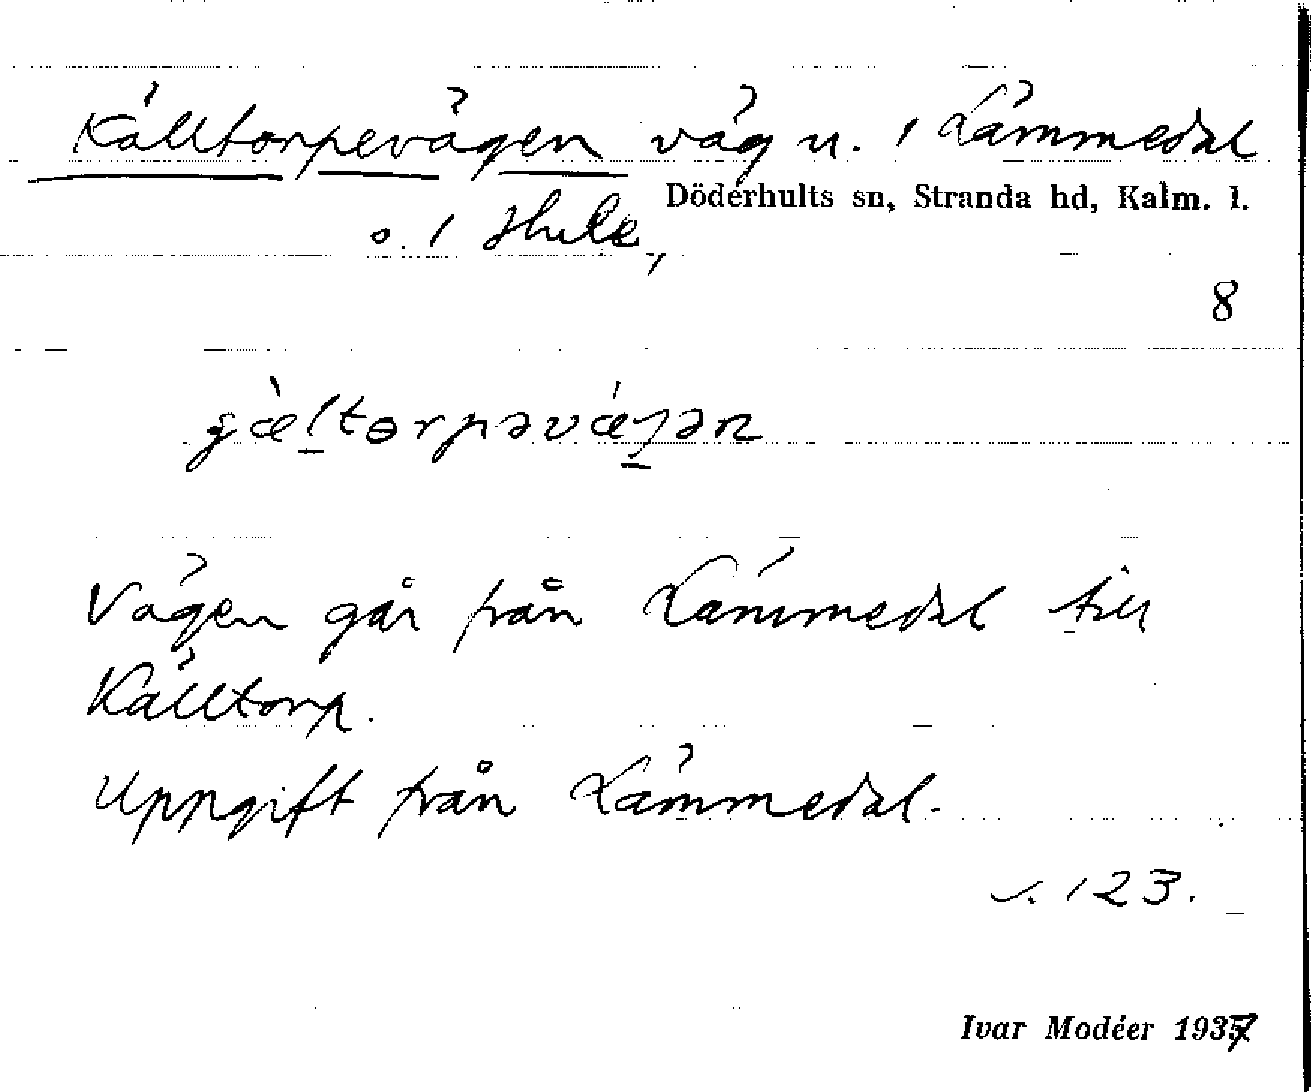 Källtorpevägen väg u. i Lämmedal
Döderhults sn, Stranda hd, Kalm. l.
o. i Hule,
8
Vägen går från Lämmedal till
Källtorp.
Uppgift från Lämmedal.
s. 123.
Ivar Modéer 1937